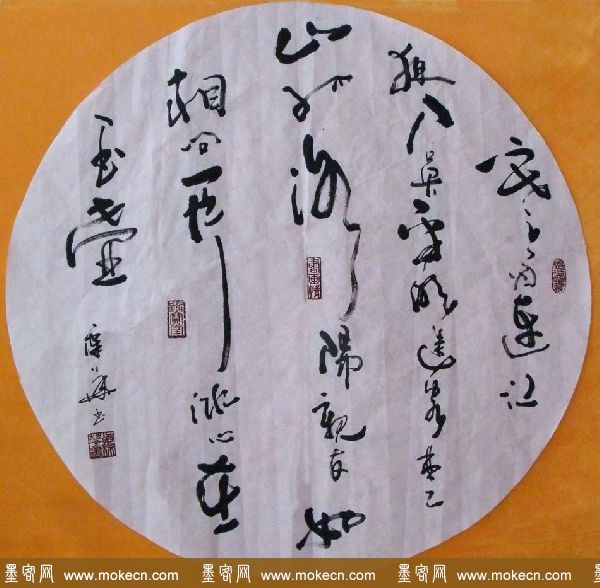 寒雨連江
夜入吳平明送客楚
山孤洛陽親友如
相問一片冰心在
玉壺
書
墨客网 www.mokecn.com 墨客网 www.mokecn.com 墨客网 www.mokecn.com 墨